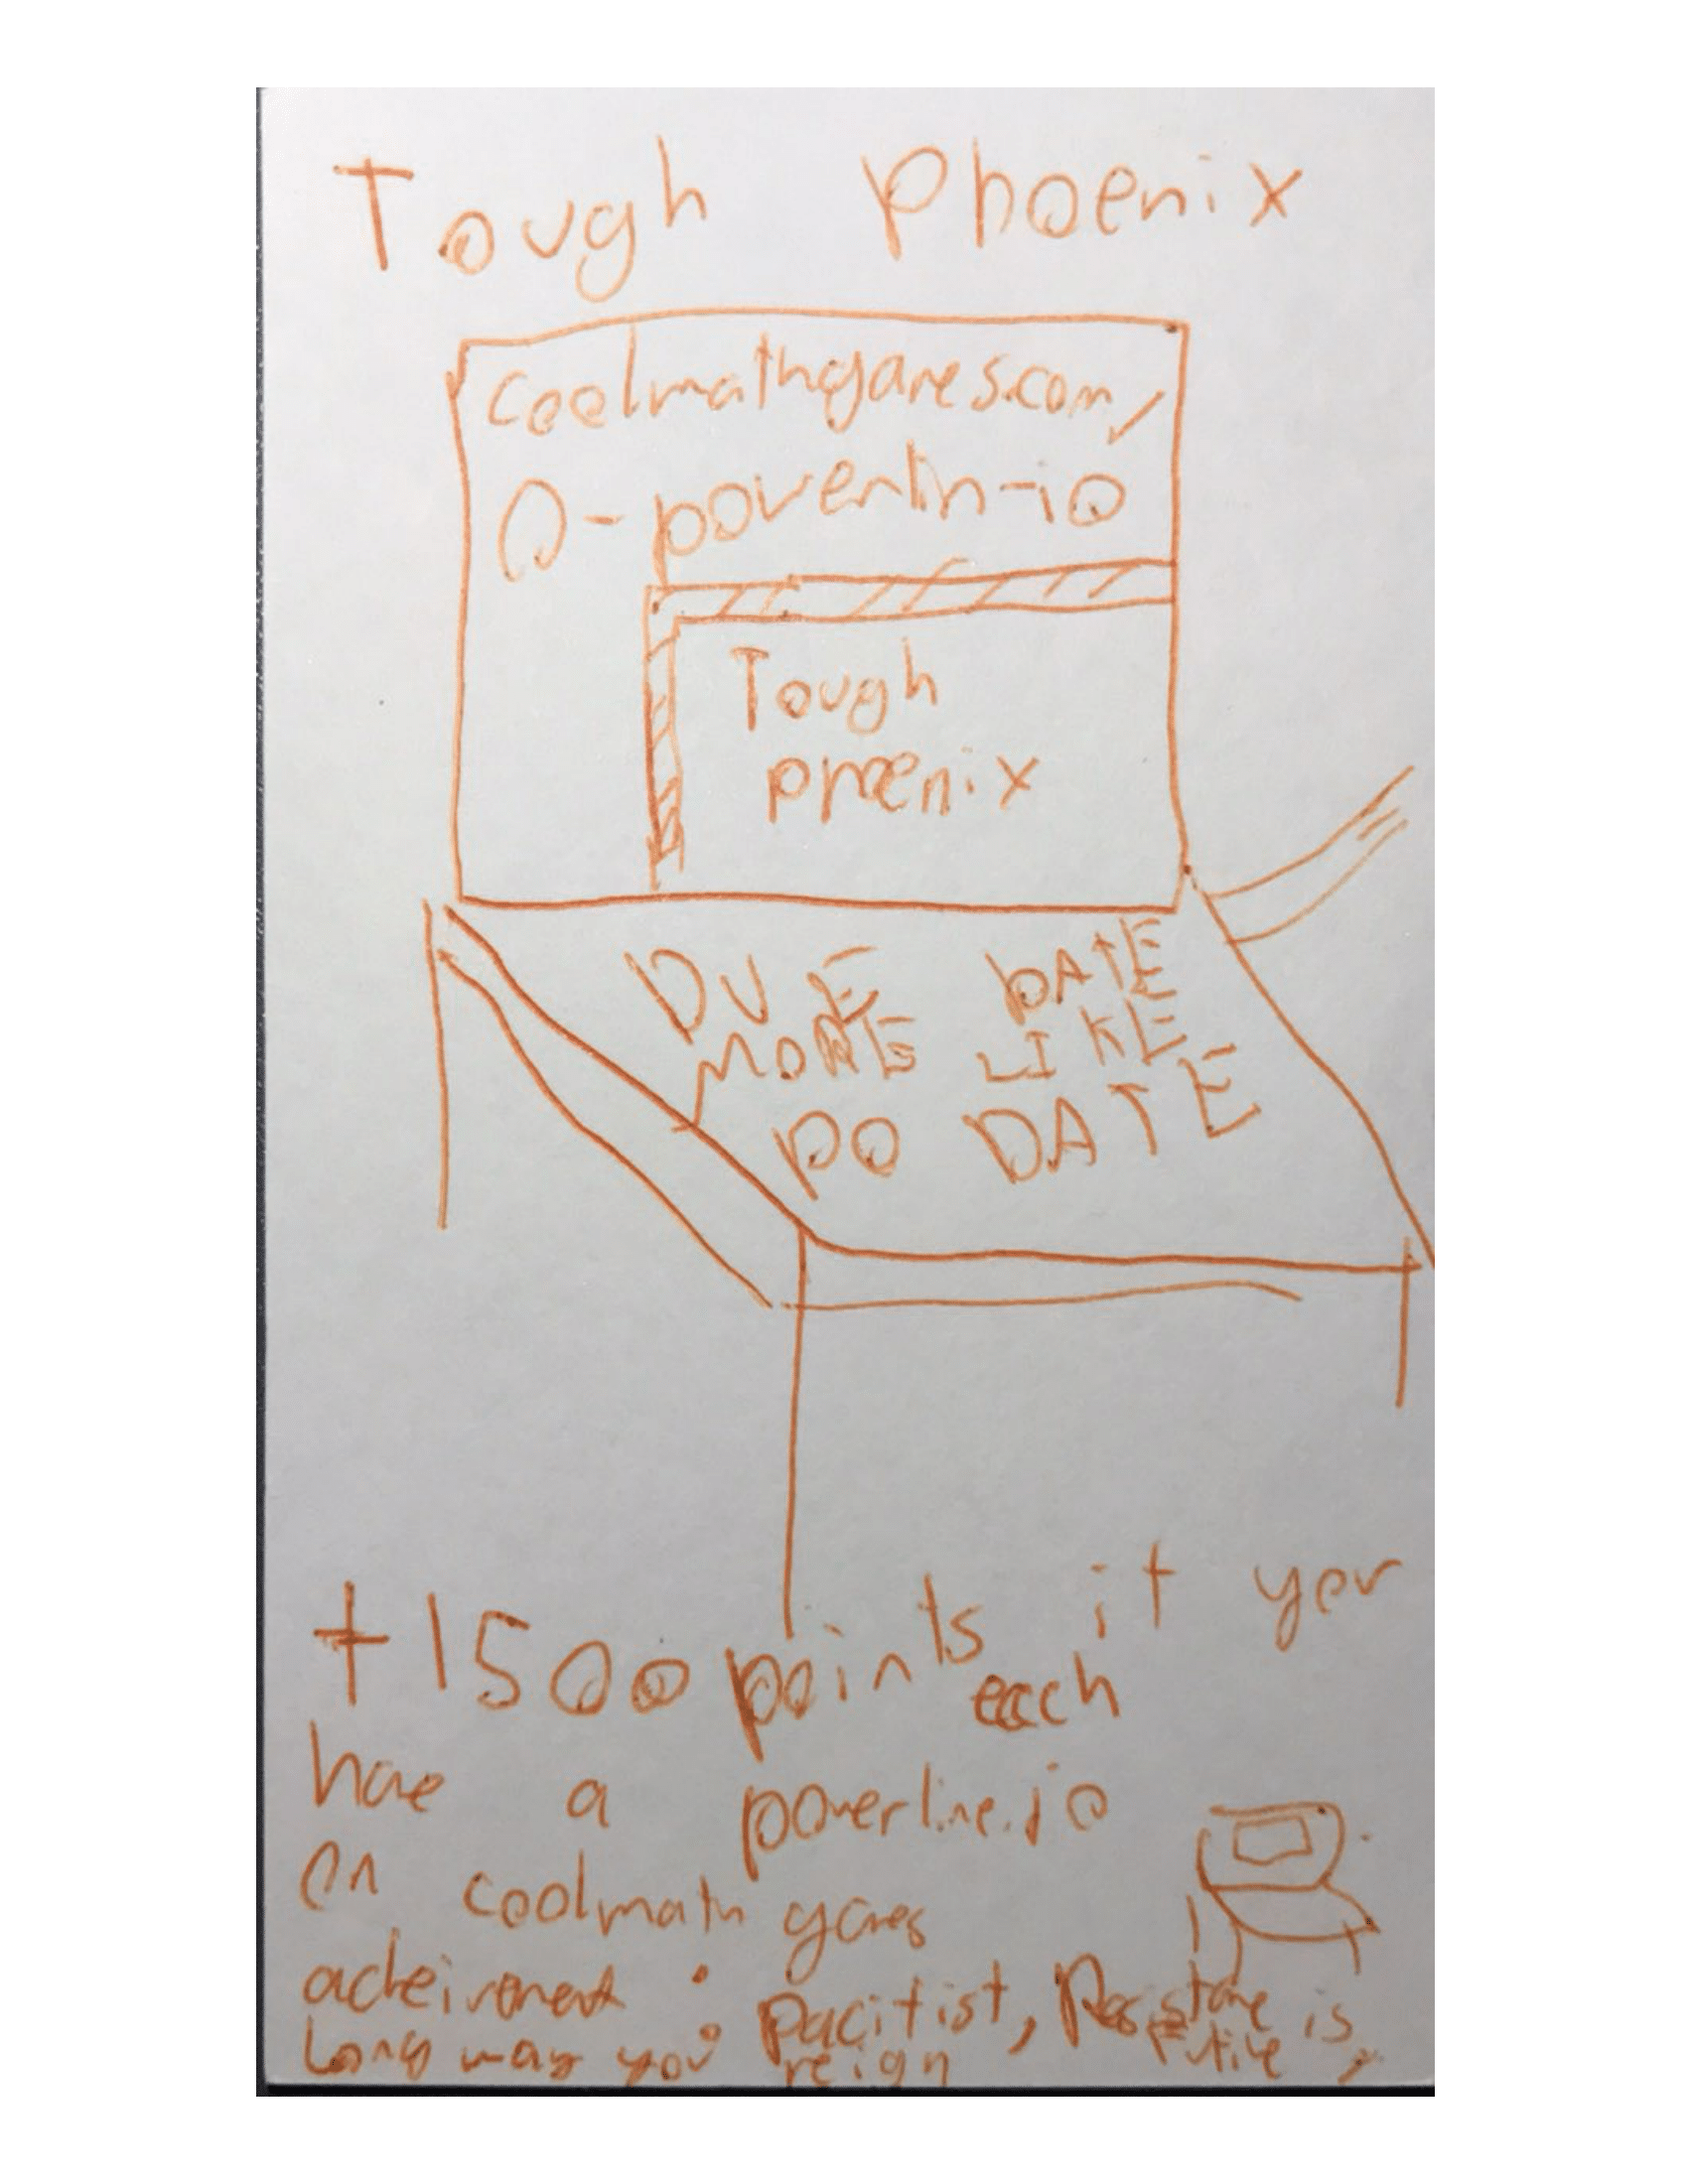 Tough Phoenix
coolmathgames.com/
0-poverlin-io
Tough
phoenix
DUE DATE
MORE LIKE
PO DATE
+1500 points if you
each
have a powerline.io
on coolmath games
acheivement : pacifist, Resistance is
futile,
Long may you reign